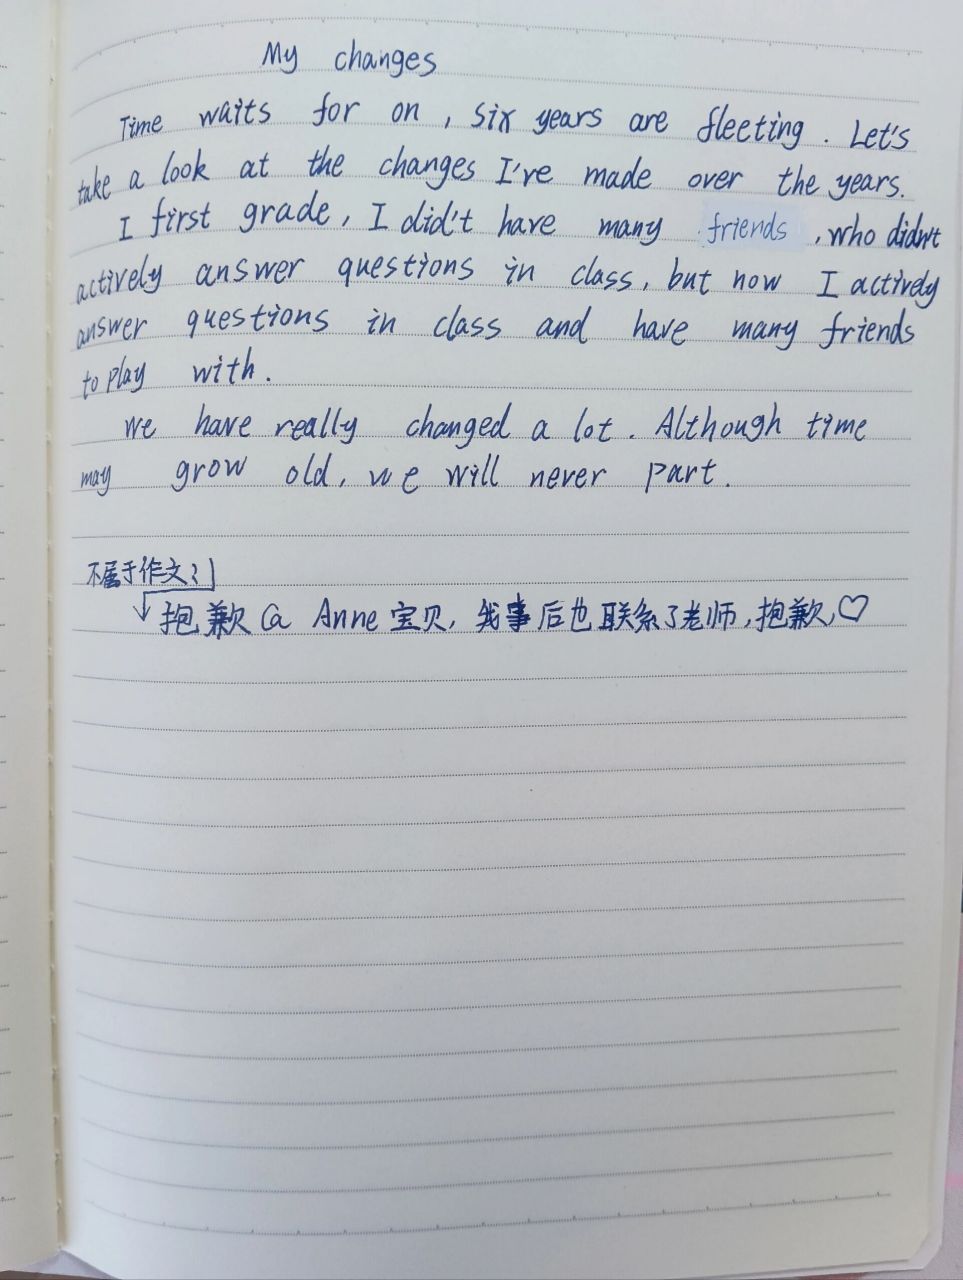 My changes
Time waits for on, six years are fleeting. Let's
take a look at the changes I've made over the years.
I first grade, I didn't have many friends, who didn't
actively answer questions in class, but now I actively
answer questions in class and have many friends
to play with.
We have really changed a lot. Although time
may grow old, we will never part.
不属于作文
抱歉@ Anne宝贝, 我事后也联系了老师,抱歉,♡